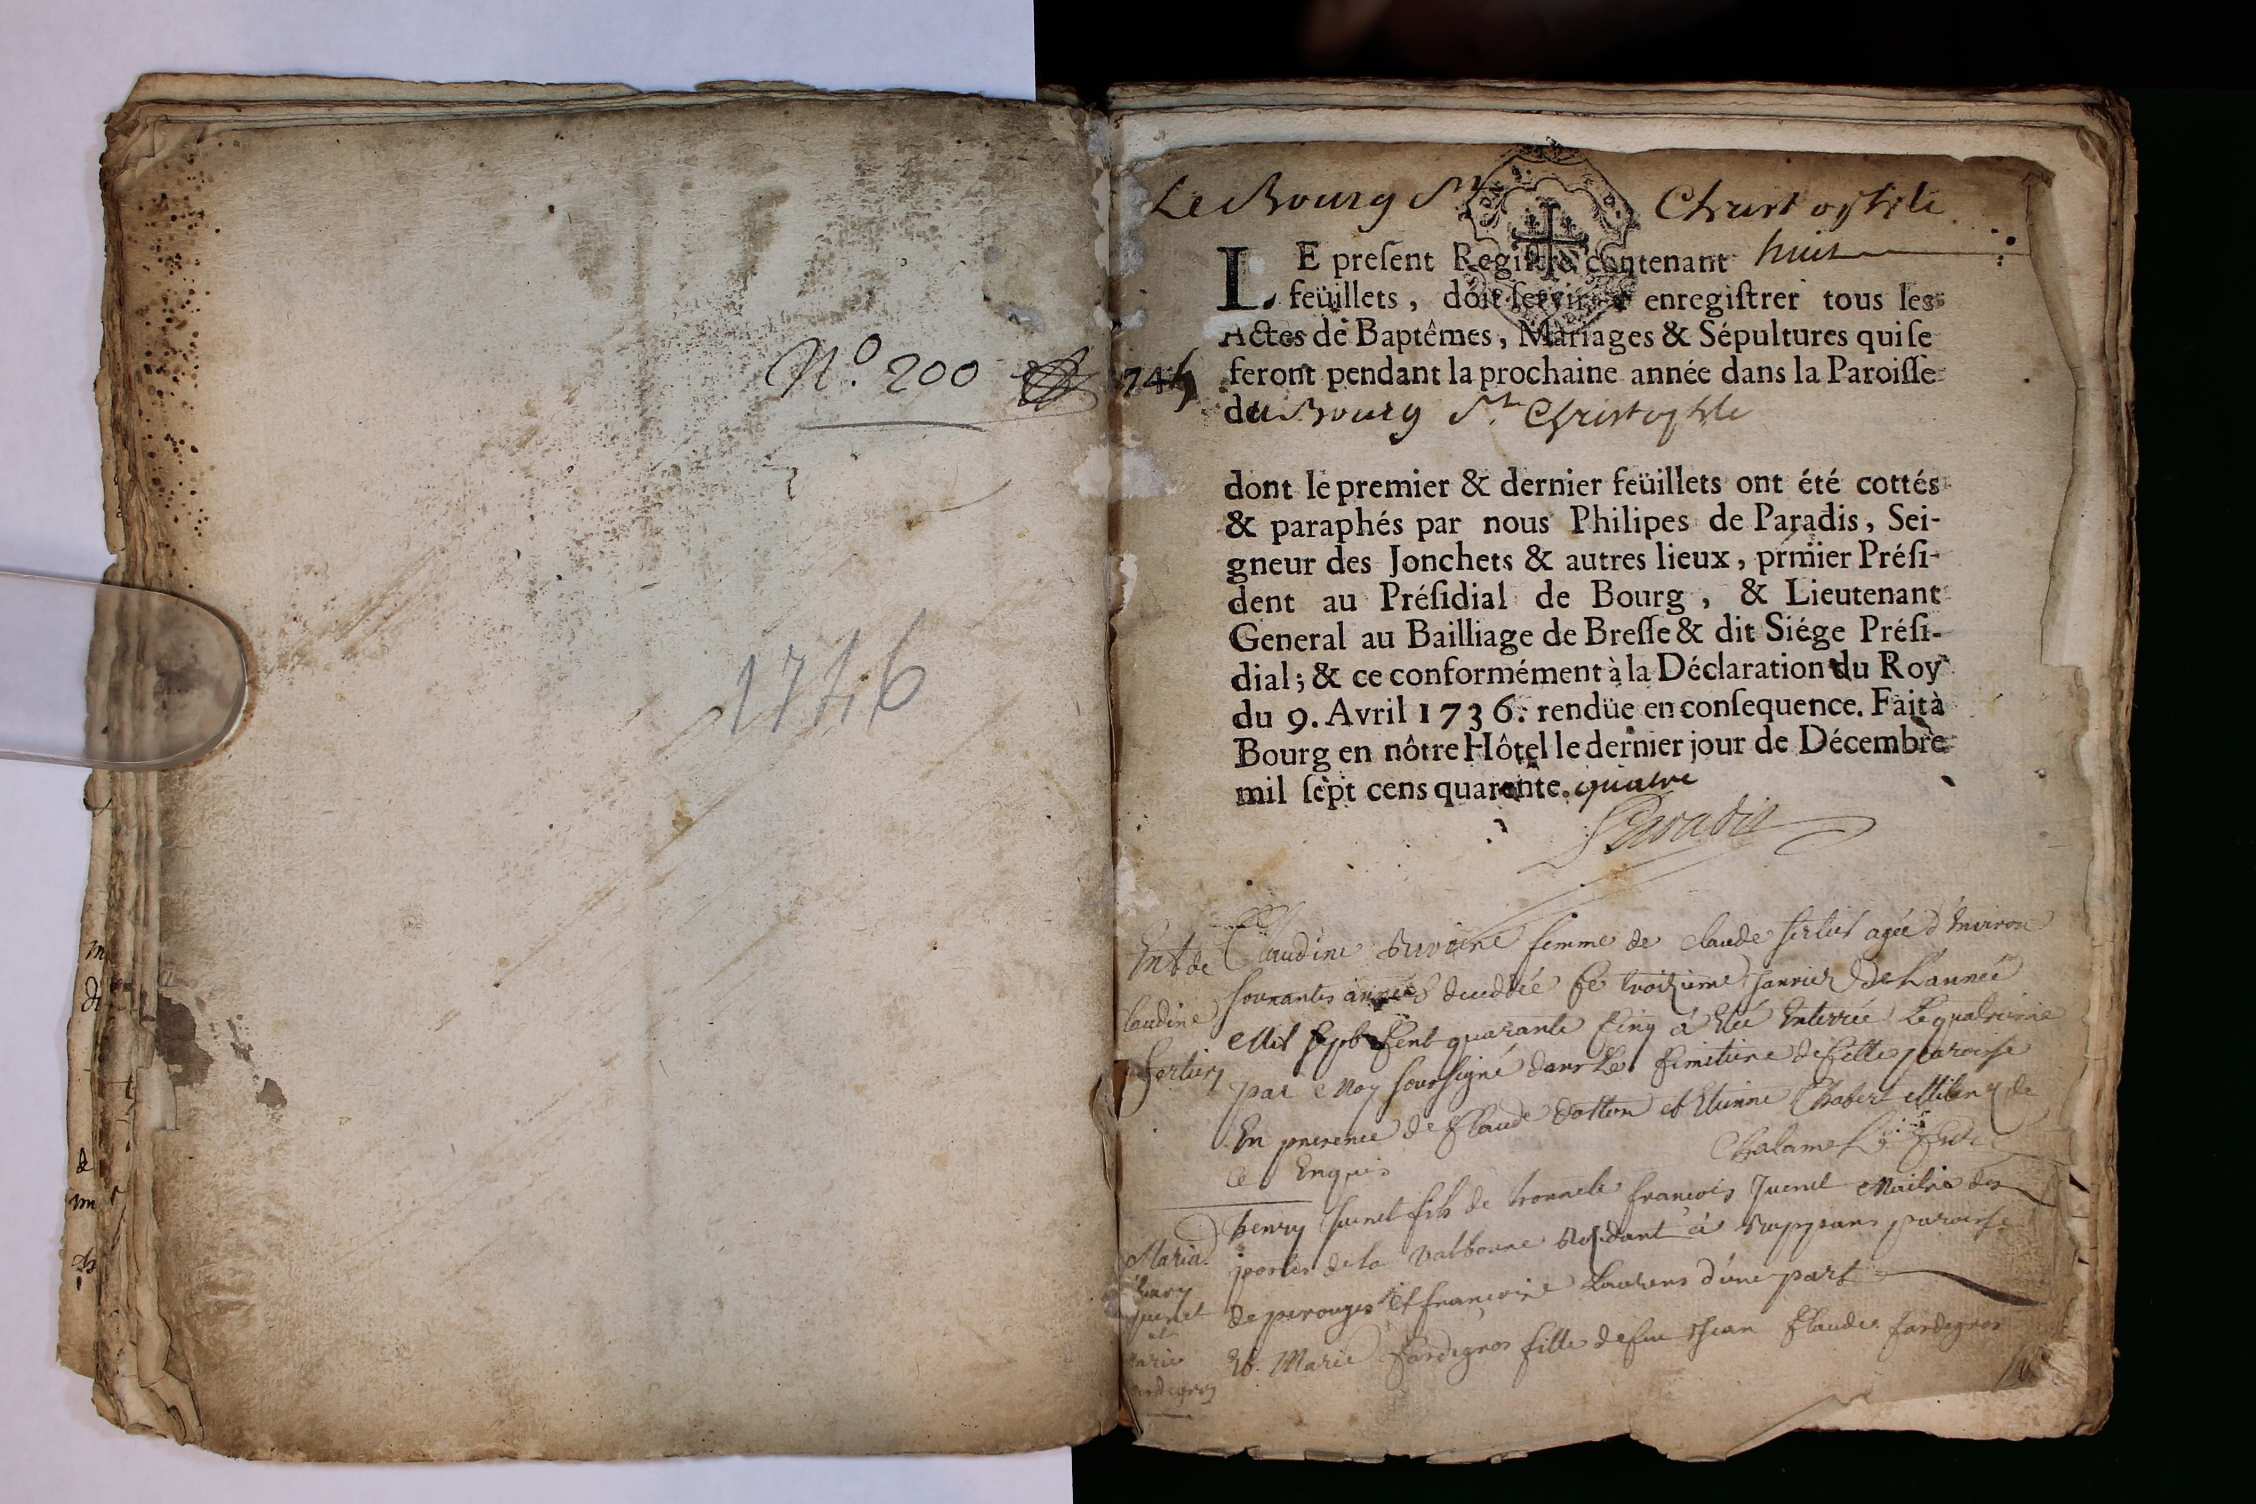 N.º 200
1746
Le Bourg St Christophle
LE preſent Regiſtre contenant huit
feüillets, doit ſervir à enregiſtrer tous les
Actes de Baptêmes, Mariages & Sépultures qui ſe
feront pendant la prochaine année dans la Paroiſſe
du Bourg St. Christophle
dont le premier & dernier feüillets ont été cottés
& paraphés par nous Philipes de Paradis, Sei-
gneur des Jonchets & autres lieux, prmier Préſi-
dent au Préſidial de Bourg, & Lieutenant
General au Bailliage de Breſſe & dit Siége Préſi-
dial; & ce conformément à la Déclaration du Roy
du 9. Avril 1736. rendüe en conſequence. Fait à
Bourg en nôtre Hôtel le dernier jour de Décembre
mil ſept cens quarente. quatre
Paradis
Ent de
laudine
Claudine femme de claude agée d'Environ
soixantes années decedée le troizieme Janvier de L'année
Mil sept Cent quarante Cinq a Eté Enterrée Le quatrieme
par Moy soussigné dans Le Cimetiere de Cette paroisse
En presence de Claude dotton et Etienne Chabert de
ce Enquis
Maria.
henry
juenet
et
marie
henry juenet fils de honnete francois Juenet Maitre des
postes de la Valbonne Residant à Rappans paroisse
de perouges et francoise Laurens d'une part
Et Marie fardegros fille de feu Jean Claude fardegros